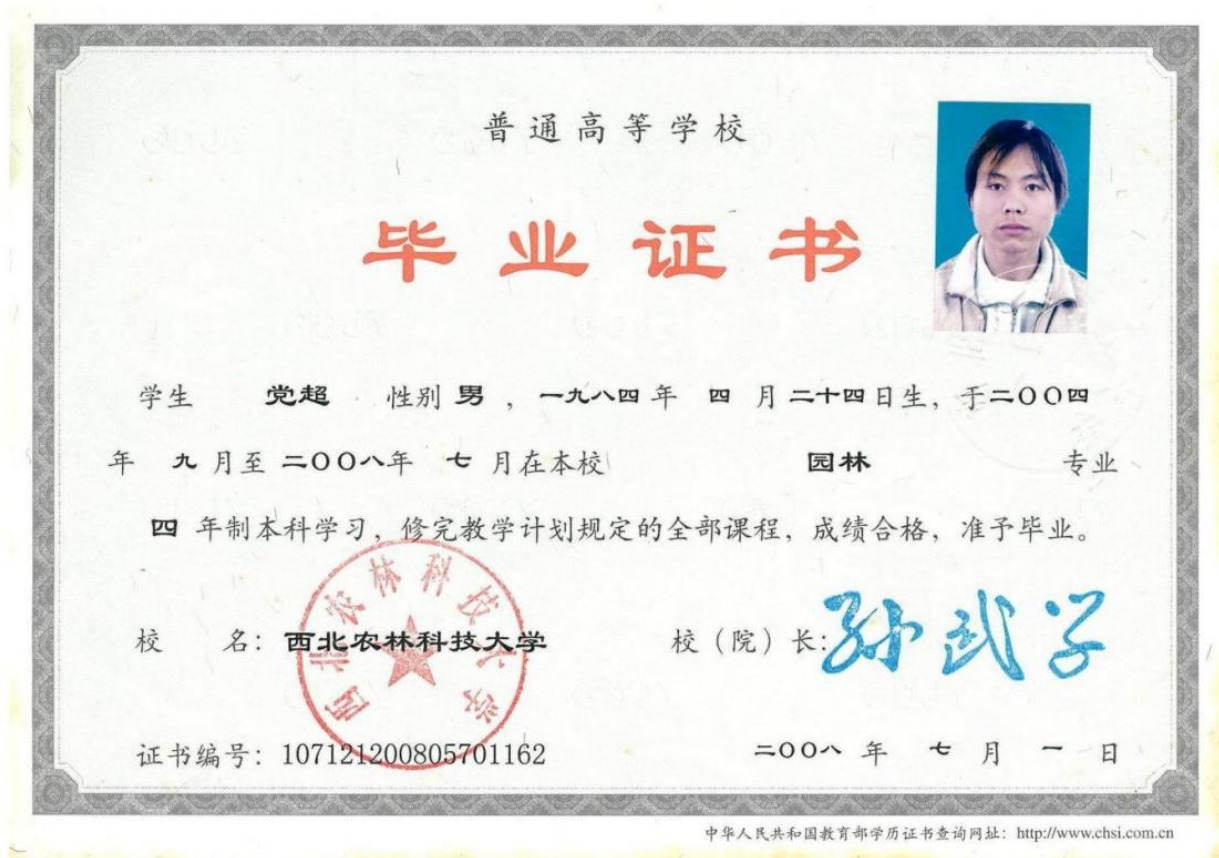 普通高等学校
毕业证书
学生 党超 性别 男 ，一九八四 年 四 月 二十四 日生，于二〇〇四
年 九 月至 二〇〇八年 七 月在本校 园林 专业
四 年制本科学习，修完教学计划规定的全部课程，成绩合格，准予毕业。
西北农林科技大学
校 名：西北农林科技大学 校（院）长：孙武学
证书编号：107121200805701162 二〇〇八 年 七 月 一 日
中华人民共和国教育部学历证书查询网址：http://www.chsi.com.cn